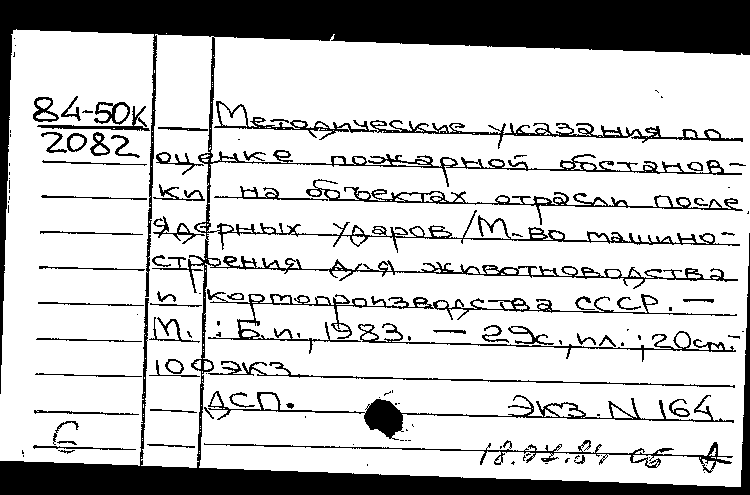 84-50к
2082
Методические указания по
оценке пожарной обстанов-
ки на объектах отрасли после
ядерных ударов/М-во машино-
строения для животноводства
и кормопроизводства СССР. —
М.: Б.и., 1983. — 29с., ил.; 20см.-
100экз
ДСП. Экз. N 164
6
18.07.84 сб